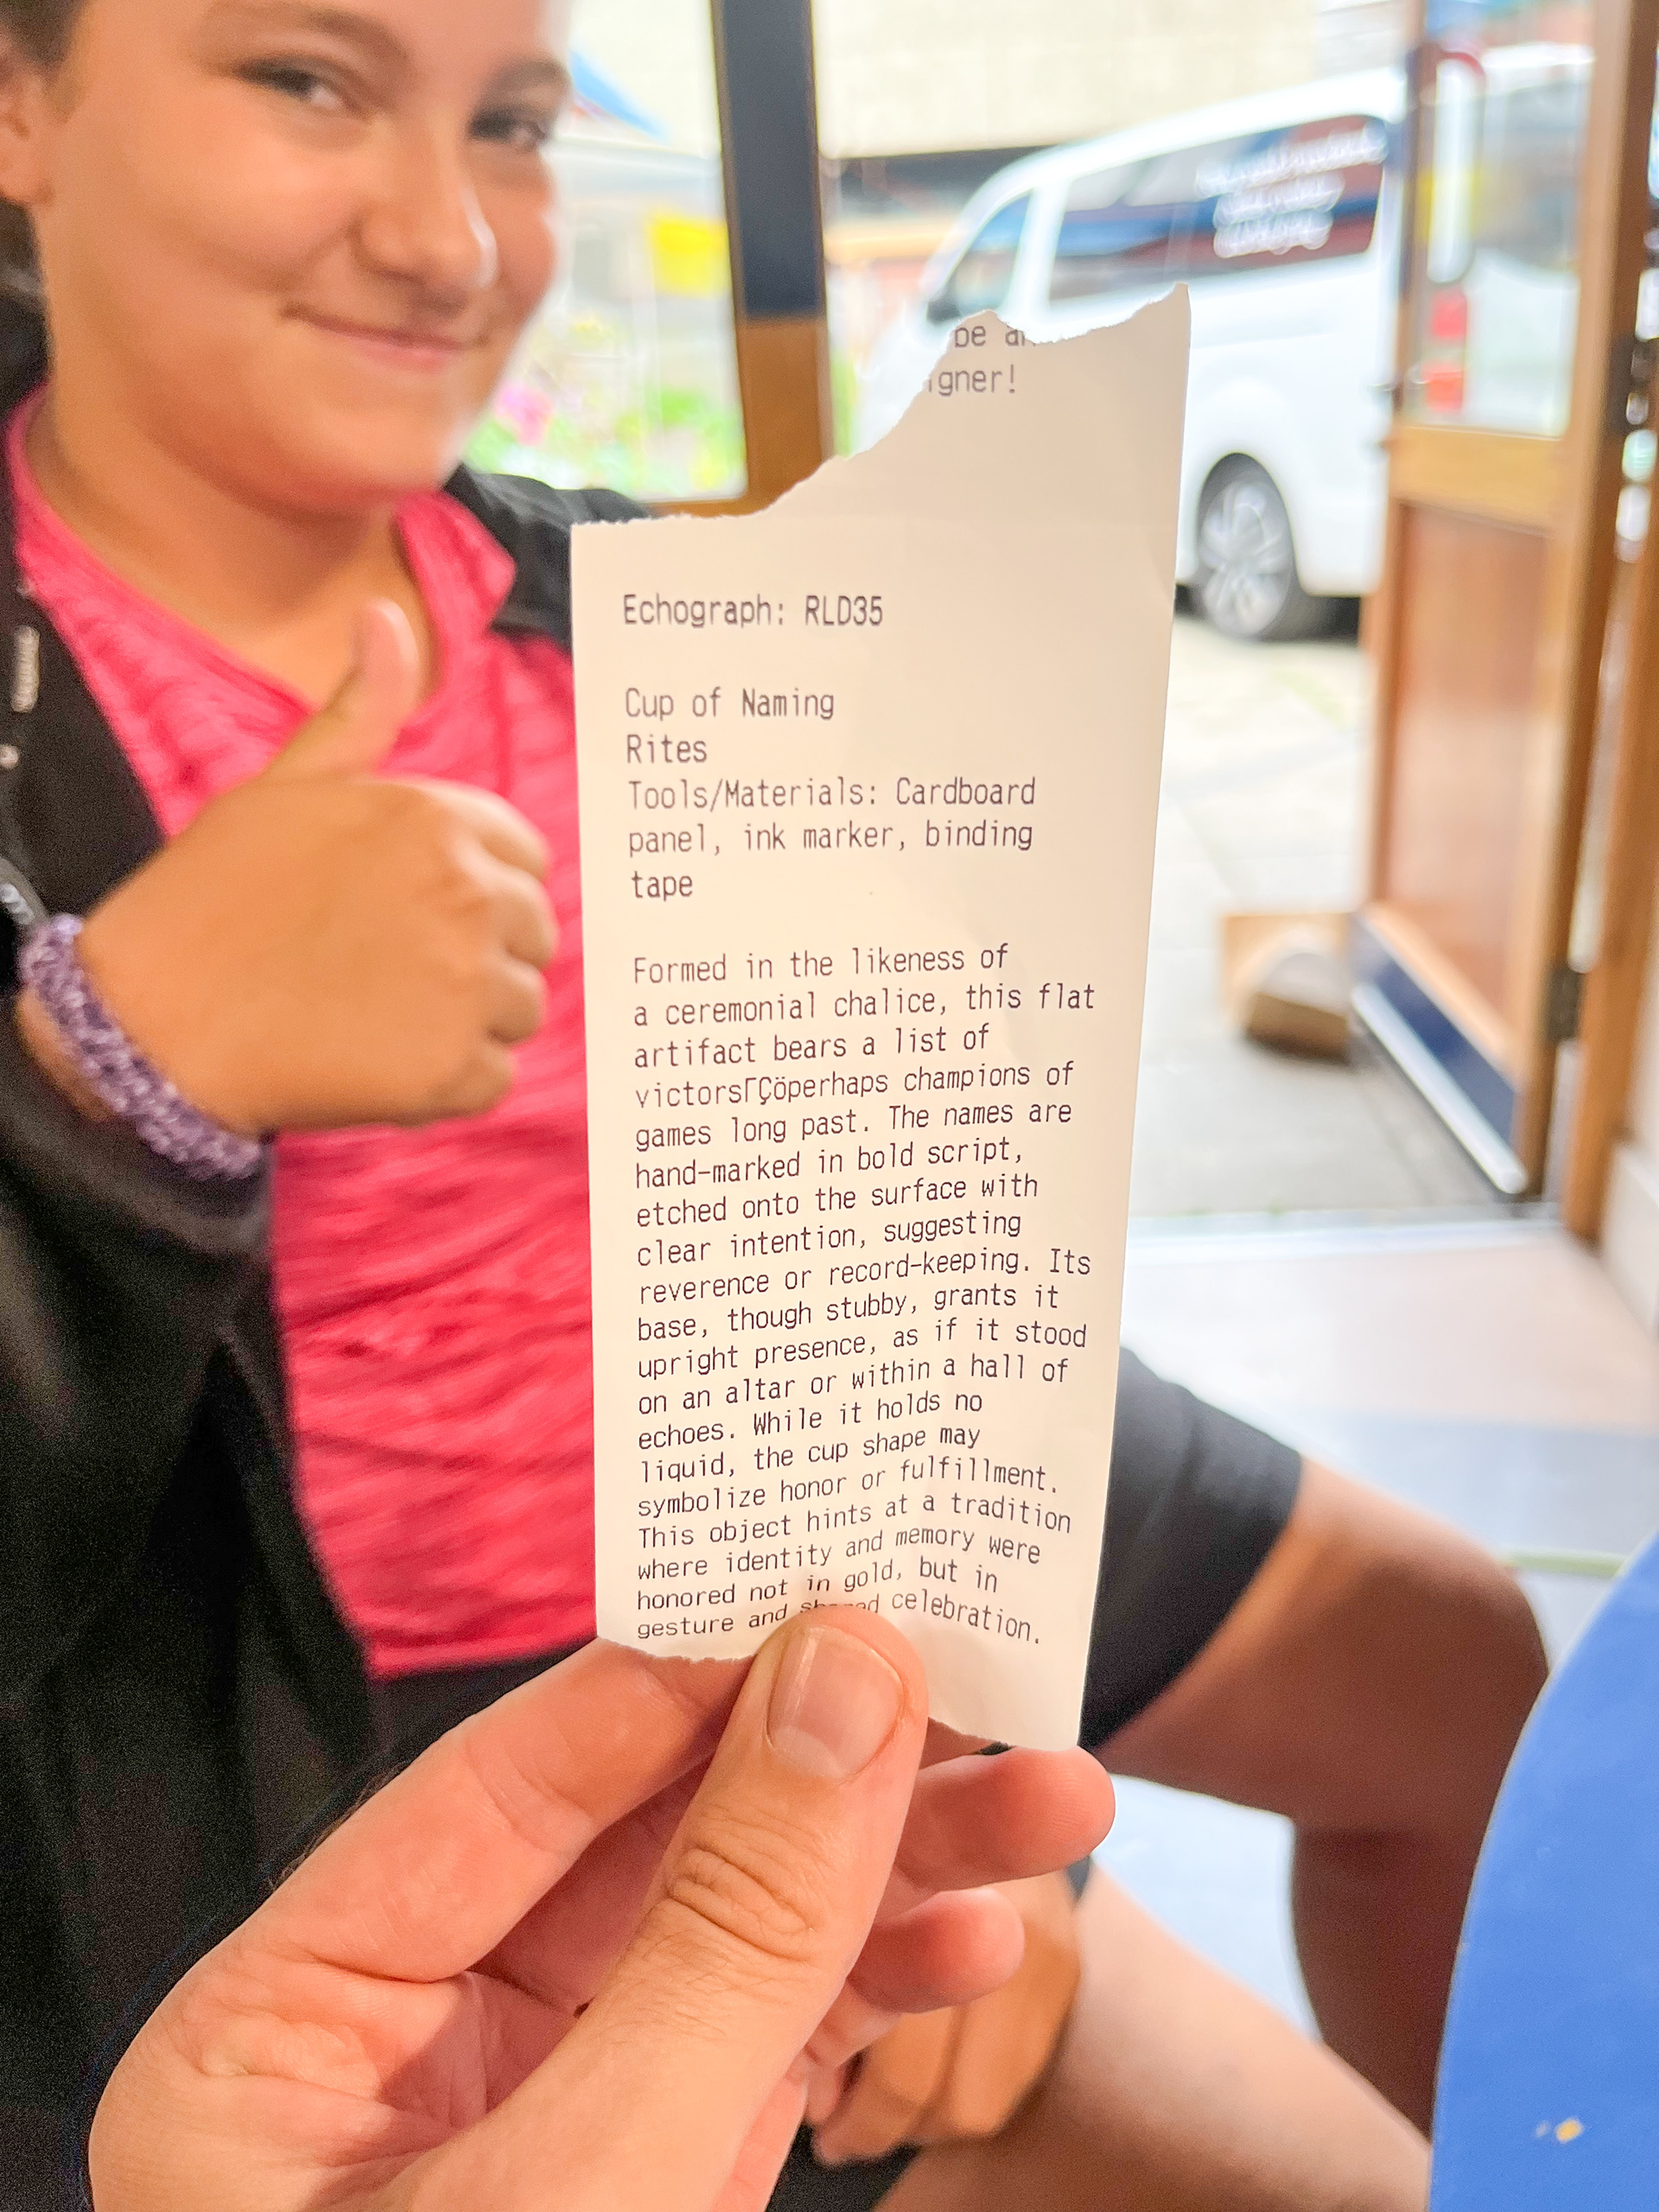 be
gner!
Echograph: RLD35
Cup of Naming
Rites
Tools/Materials: Cardboard
panel, ink marker, binding
tape
Formed in the likeness of
a ceremonial chalice, this flat
artifact bears a list of
victorsΓÇöperhaps champions of
games long past. The names are
hand-marked in bold script,
etched onto the surface with
clear intention, suggesting
reverence or record-keeping. Its
base, though stubby, grants it
upright presence, as if it stood
on an altar or within a hall of
echoes. While it holds no
liquid, the cup shape may
symbolize honor or fulfillment.
This object hints at a tradition
where identity and memory were
honored not in gold, but in
gesture and celebration.